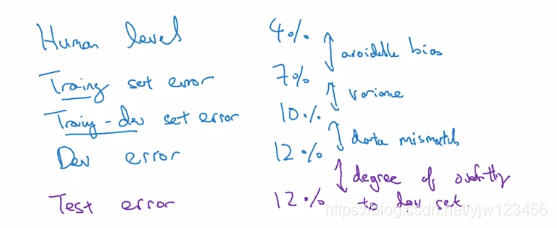 Human level 4%
avoidable bias
Training set error 7%
variance
Training-dev set error 10%
data mismatch
Dev error 12%
degree of overfitting
Test error 12% to dev set.
https://blog.csdn.net/yjw123456